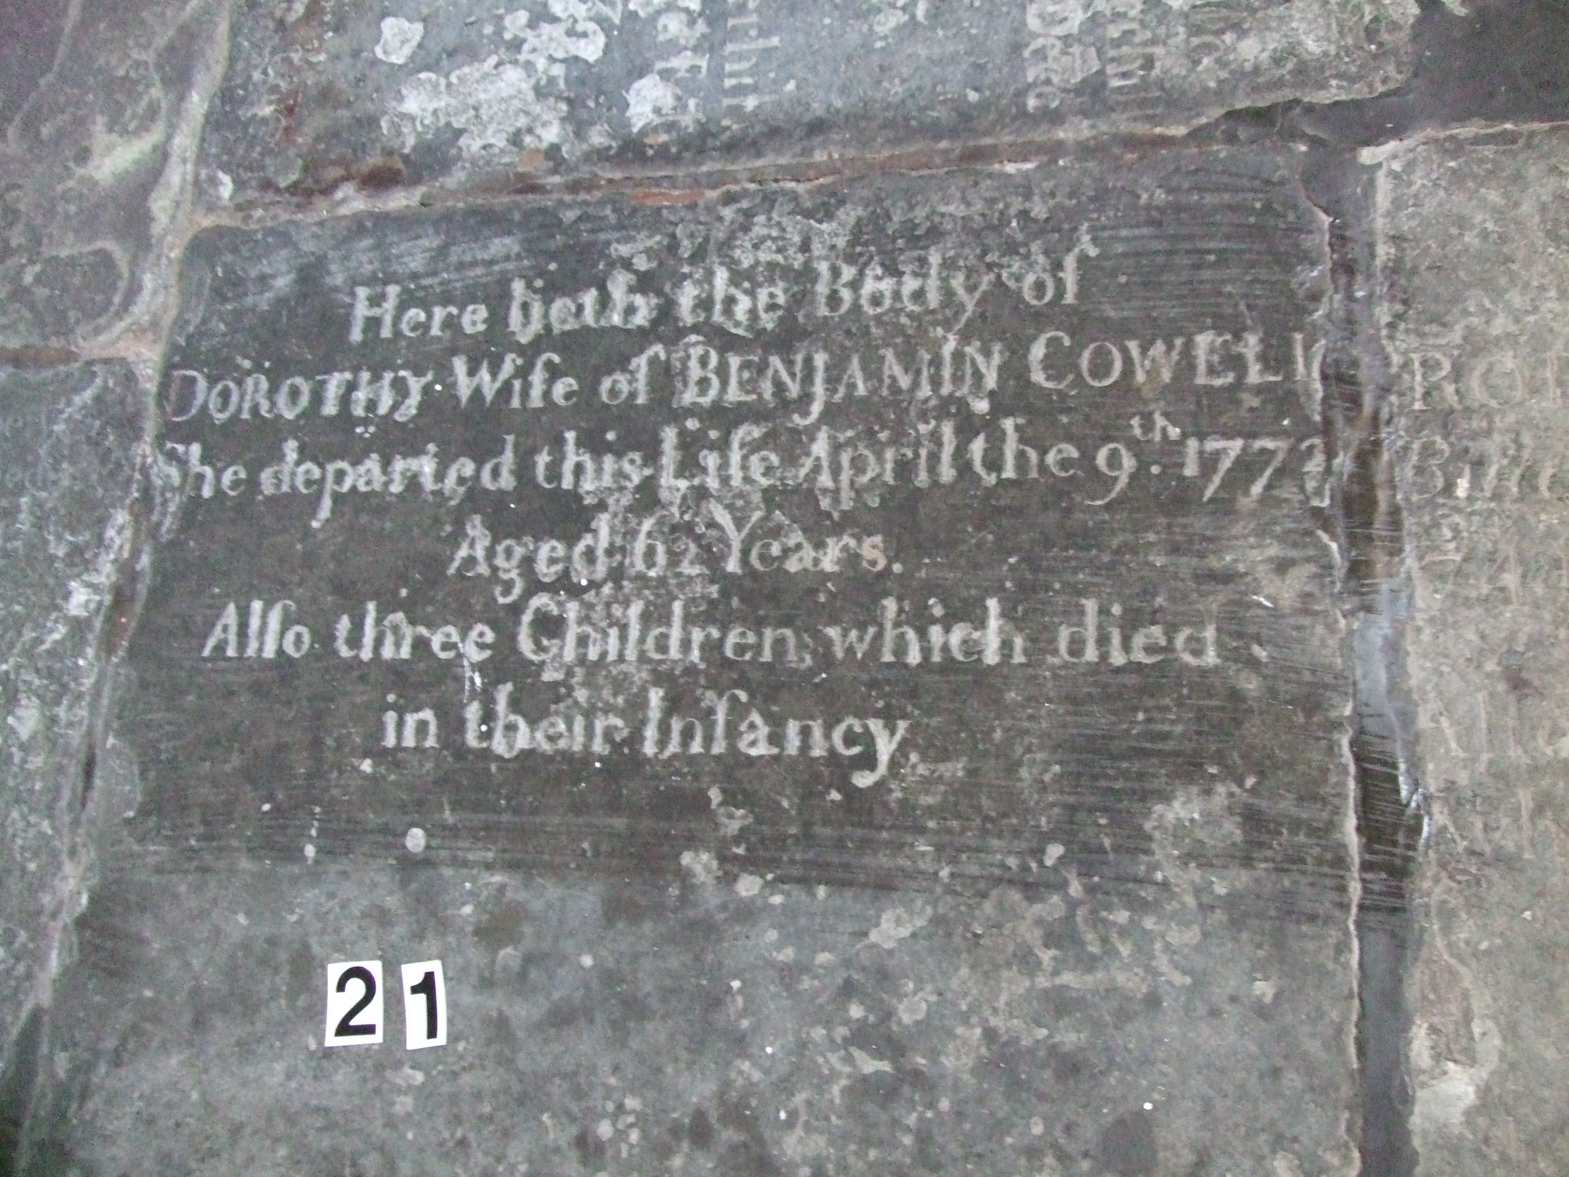 Here lieth the Body of
DOROTHY Wife of BENJAMIN COWELL
She departed this Life April the 9th. 1772
Aged 62 Years.
Alſo three Children which died
in their Infancy
21